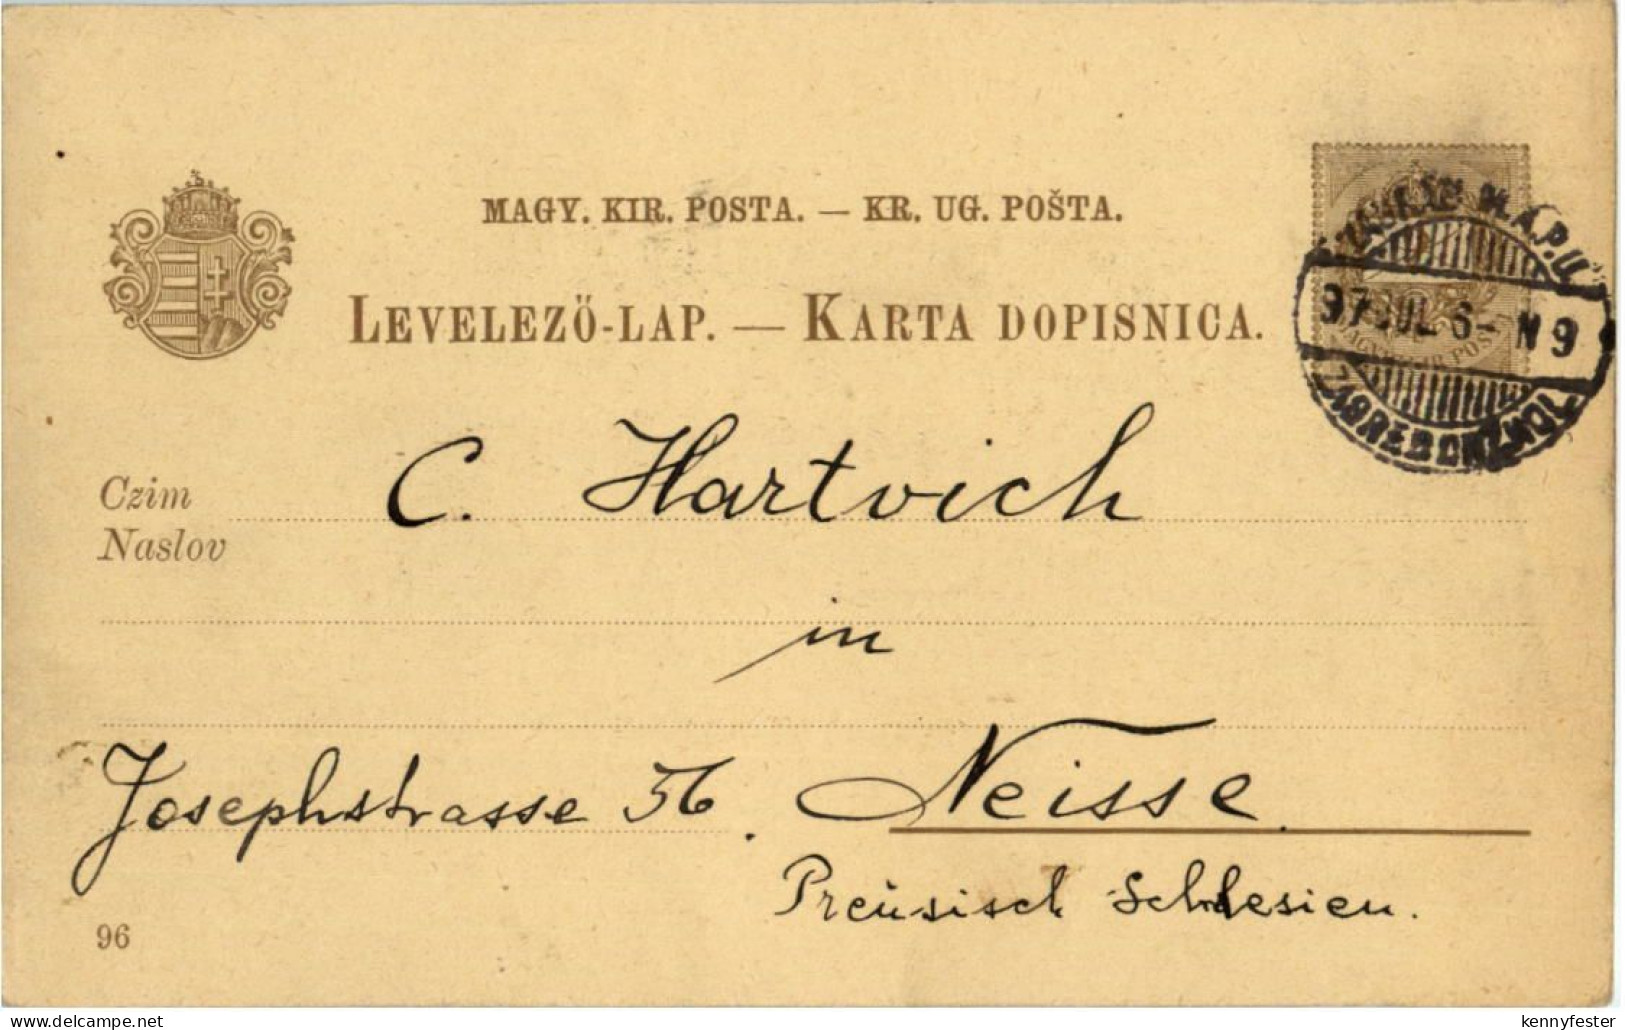 MAGY. KIR. POSTA. — KR. UG. POŠTA.
LEVELEZŐ-LAP. — KARTA DOPISNICA.
97 JUL 6- N 9
C. Hartvich
Czim
Naslov
in
Josephstrasse 56. Neisse.
Preüsisch Schlesien.
96
www.delcampe.net
kennyfester